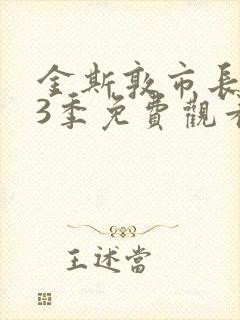 金斯敦市長
3季免費觀看
王述當